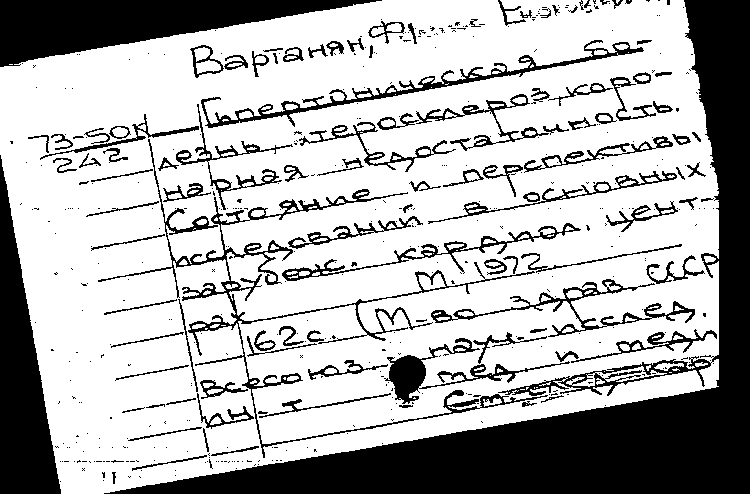 Вартанян,
Гипертоническая бо-
73-50К
242
лезнь, атеросклероз, коро-
нарная недостаточность.
Состояние и перспективы
исследований в основных
зарубеж. кардиол. цент-
рах М., 1972.
162с. (М-во здрав. СССР
Всесоюз. науч.-исслед.
ин-т мед. и меди
См. след. кар